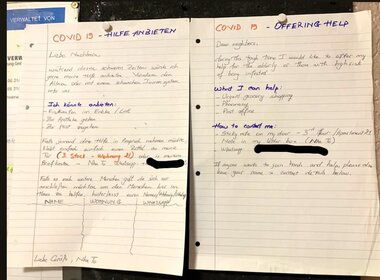 VERWALTET VON
COVID 19 - HILFE ANBIETEN
Liebe Nachbarn,
während dieser schweren Zeiten würde ich
gern meine Hilfe anbieten.
Ich könnte anbieten:
- Einkaufen im Edeka / Lidl
- Zur Apotheke gehen
- Zur Post gehen
Falls jemand diese Hilfe in Anspruch nehmen möchte,
bitte einfach einen Zettel an meine
Tür (3. Stock - Wohnung 21) oder in meinem
Briefkasten - Nha T. Whatsapp:
NAME WOHNUNG WHATSAPP
Liebe Grüße, Nha T.
COVID 19 - OFFERING HELP
Dear neighbors,
during the tough time I would like to offer my
help for the elderly or those with high risk
of being infected.
What I can help:
- Urgent grocery shopping
- Pharmacy
- Post office
How to contact me:
- Sticky note on my door - 3rd floor / apartment 21
- Note in my letter box (Nha T.)
- Whatsapp
If anyone wants to join hands and help, please also
leave your name & contact details below.